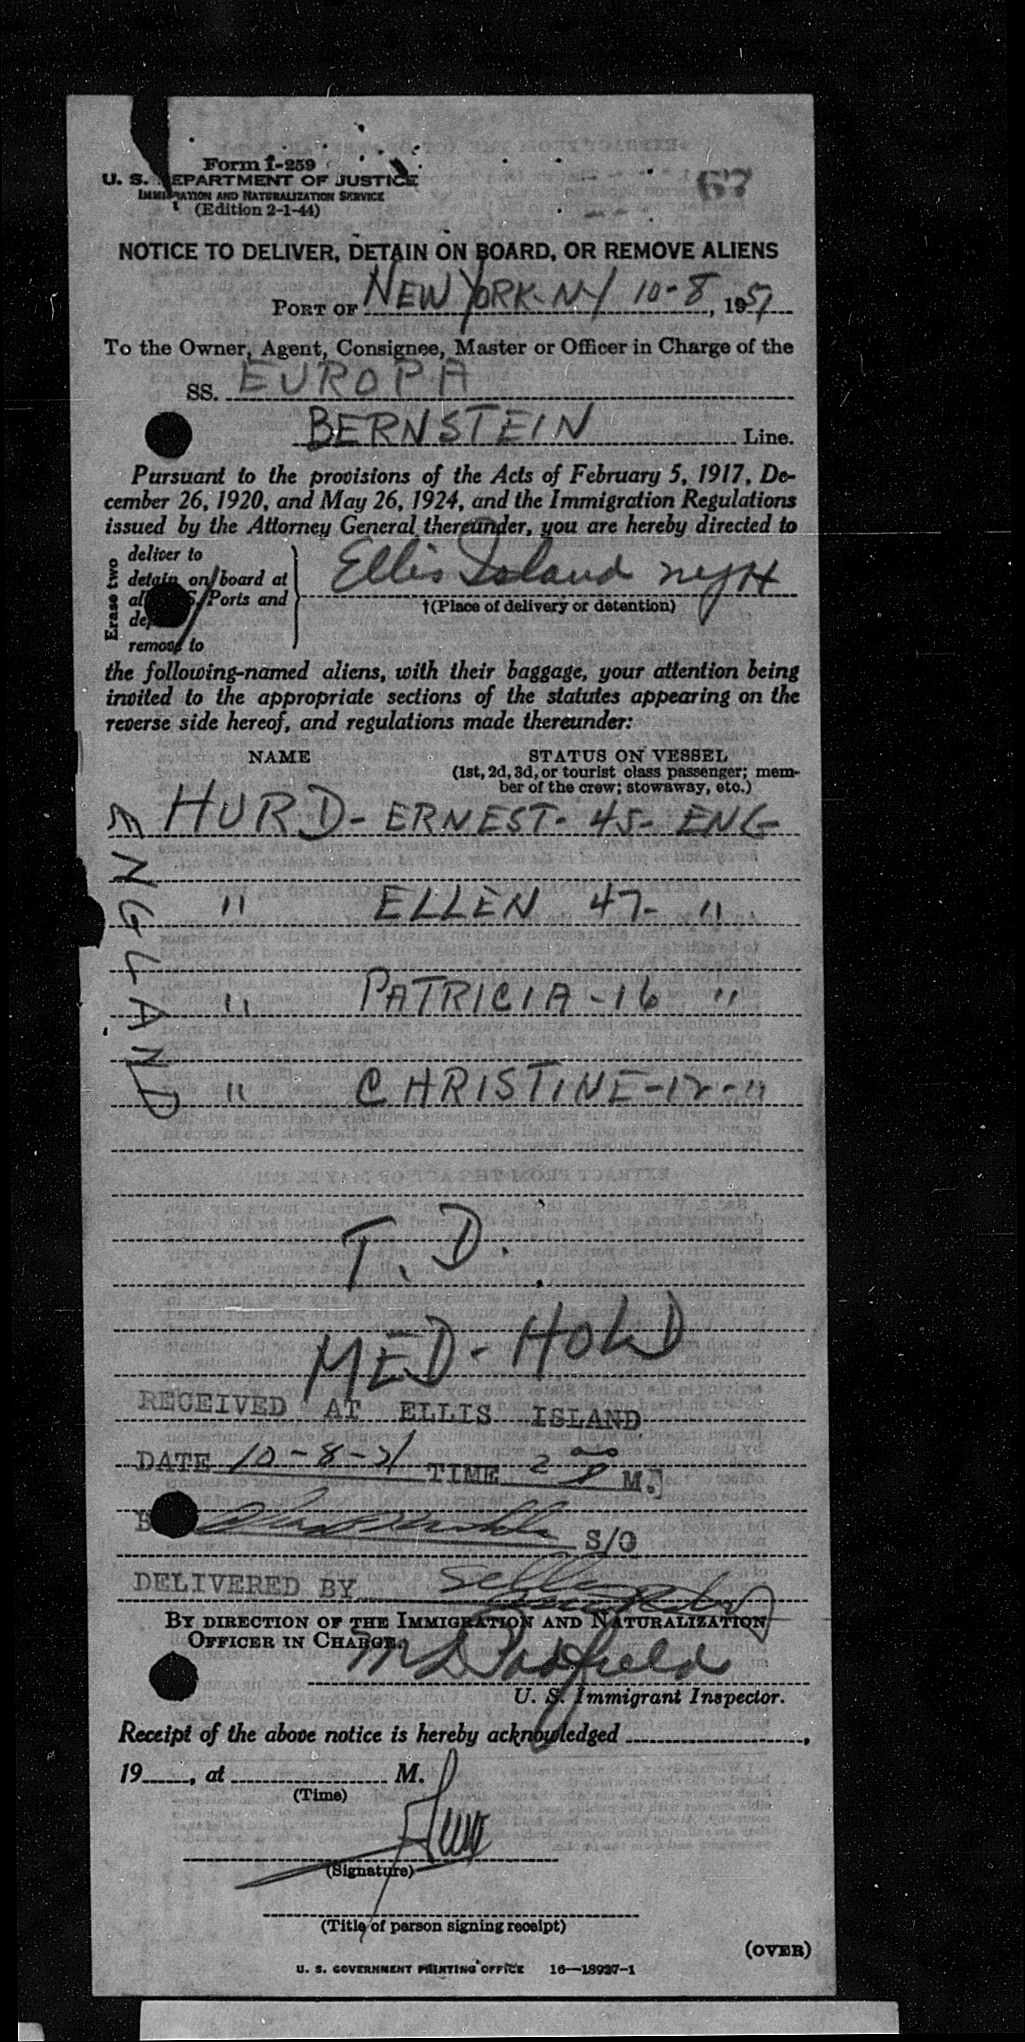 Form I-259
U. S. DEPARTMENT OF JUSTICE
IMMIGRATION AND NATURALIZATION SERVICE
(Edition 2-1-44)
67
NOTICE TO DELIVER, DETAIN ON BOARD, OR REMOVE ALIENS
PORT OF NEW YORK-NY 10-8, 1951
To the Owner, Agent, Consignee, Master or Officer in Charge of the
SS. EUROPA
BERNSTEIN Line.
Pursuant to the provisions of the Acts of February 5, 1917, De-
cember 26, 1920, and May 26, 1924, and the Immigration Regulations
issued by the Attorney General thereunder, you are hereby directed to
Erase two
deliver to
detain on board at
al S. Ports and
de
remove to
Ellis Island NYH
†(Place of delivery or detention)
the following-named aliens, with their baggage, your attention being
invited to the appropriate sections of the statutes appearing on the
reverse side hereof, and regulations made thereunder:
NAME STATUS ON VESSEL
(1st, 2d, 3d, or tourist class passenger; mem-
ber of the crew; stowaway, etc.)
ENGLAND
HURD - ERNEST - 45 - ENG
" ELLEN 47 - "
" PATRICIA - 16 "
" CHRISTINE - 12 - "
T. D.
MED - HOLD
RECEIVED AT ELLIS ISLAND
DATE 10-8-51 TIME 2 00 P M.
S/O
DELIVERED BY
BY DIRECTION OF THE IMMIGRATION AND NATURALIZATION
OFFICER IN CHARGE.
U. S. Immigrant Inspector.
Receipt of the above notice is hereby acknowledged ,
19 , at M.
(Time)
(Signature)
(Title of person signing receipt)
(OVER)
U. S. GOVERNMENT PRINTING OFFICE 16—18927-1